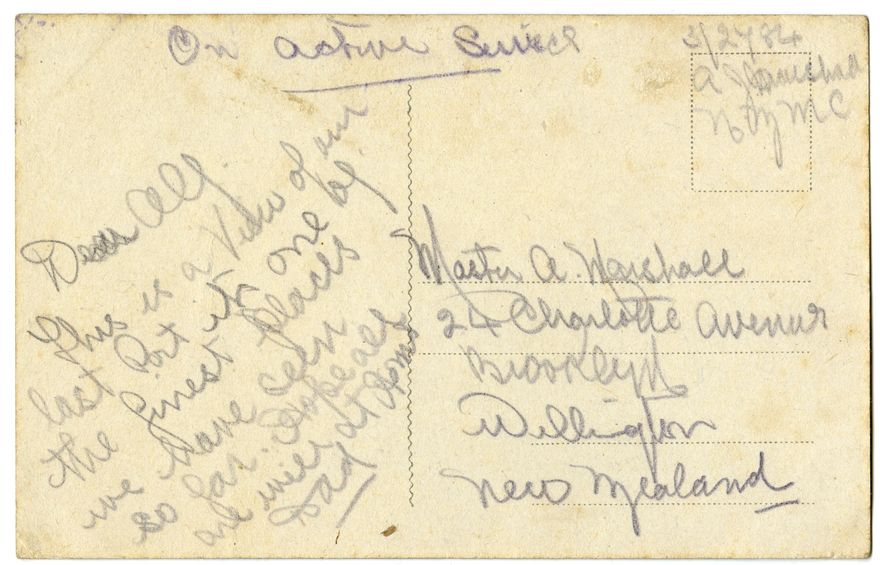 On Active Service
3/2784
A Marshall
N Z M C
Dear Alf.
This is a View of our
last Port its one of
the finest Places
we have seen
so far. Hope all
are well at Home
Dad
Master A. Marshall
24 Charlotte Avenue
Brooklyn
Wellington
New Zealand